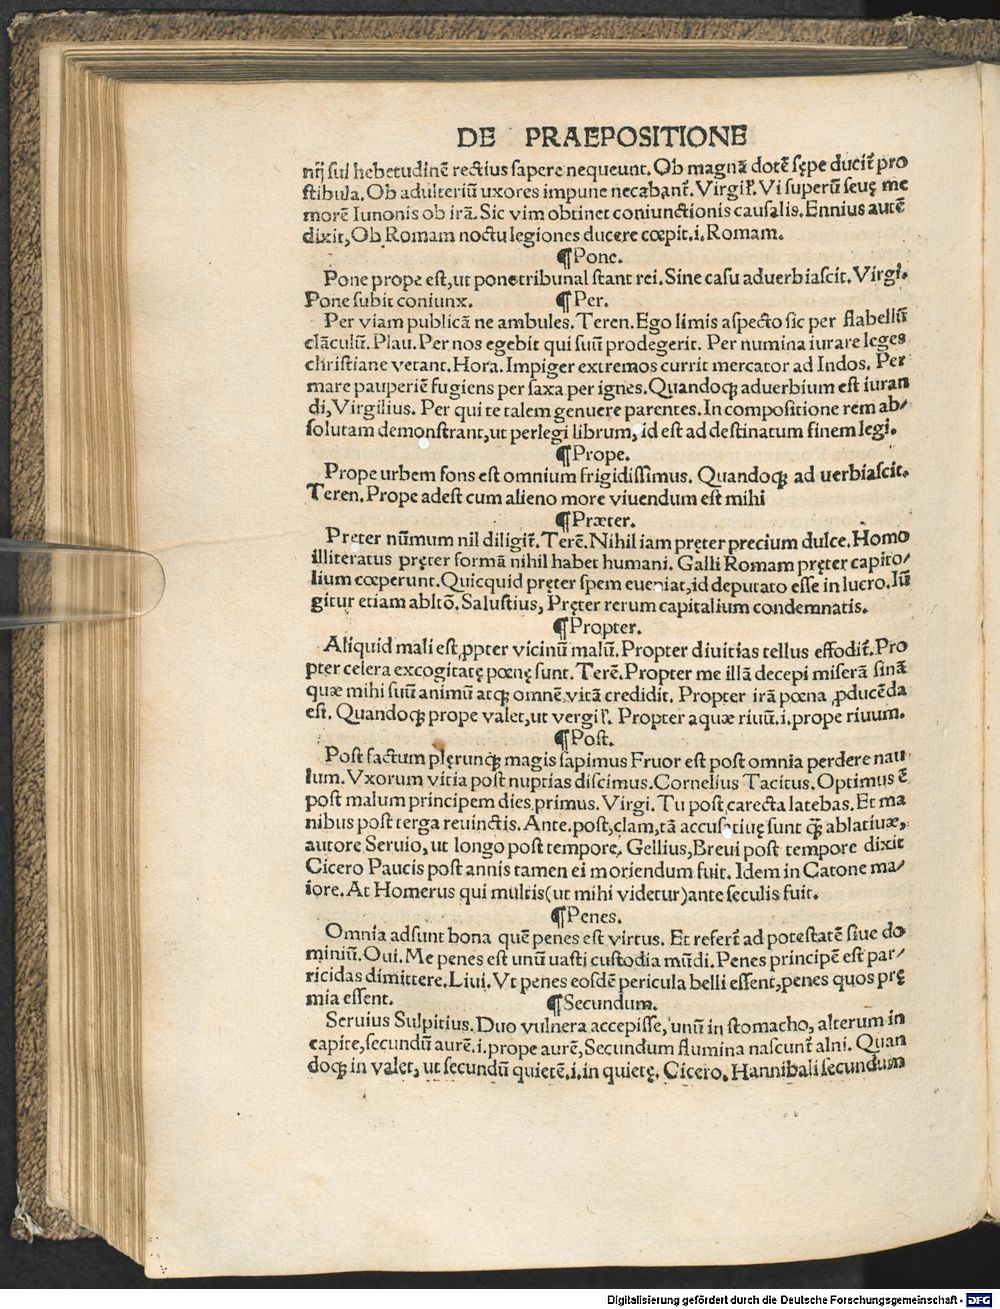 DE PRAEPOSITIONE
nij sui hebetudinē rectius sapere nequeunt. Ob magnā dotē sępe ducit᷑ pro
stibula. Ob adulteriū uxores impune necabant᷑. Virgiľ. Vi superū seuę me
morē Iunonis ob irā. Sic vim obtinet coniunctionis causalis. Ennius autē
dixit, Ob Romam noctu legiones ducere cœpit .i. Romam.
¶Pone.
Pone prope est, ut pone tribunal stant rei. Sine casu aduerbiascit. Virgi.
Pone subit coniunx. ¶Per.
Per viam publicā ne ambules. Teren. Ego limis aspecto sic per flabellū
clāculū. Plau. Per nos egebit qui suū prodegerit. Per numina iurare leges
christiane vetant. Hora. Impiger extremos currit mercator ad Indos. Per
mare pauperiē fugiens per saxa per ignes. Quandoqꝫ aduerbium est iuran
di, Virgilius. Per qui te talem genuere parentes. In compositione rem ab⸗
solutam demonstrant, ut perlegi librum, id est ad destinatum finem legi.
¶Prope.
Prope urbem fons est omnium frigidissimus. Quandoqꝫ ad uerbiascit.
Teren. Prope adest cum alieno more viuendum est mihi
¶Præter.
Pręter nūmum nil diligit᷑. Terē. Nihil iam pręter precium dulce. Homo
illiteratus pręter formā nihil habet humani. Galli Romam pręter capito⸗
lium cœperunt. Quicquid pręter spem eueniat, id deputato esse in lucro. Iū
gitur etiam abltō. Salustius, Pręter rerum capitalium condemnatis.
¶Propter.
Aliquid mali est ꝓpter vicinū malū. Propter diuitias tellus effodit᷑. Pro
pter celera excogitatę pœnę sunt. Terē. Propter me illā decepi miserā sinā
quæ mihi suū animū atqꝫ omnē vitā credidit. Propter irā pœna ꝓducēda
est. Quandoqꝫ prope valet, ut vergiľ. Propter aquæ riuū .i. prope riuum.
¶Post.
Post factum plęrunqꝫ magis sapimus Fruor est post omnia perdere nau
lum. Vxorum vitia post nuptias discimus. Cornelius Tacitus. Optimus ē
post malum principem dies primus. Virgi. Tu post carecta latebas. Et ma
nibus post terga reuinctis. Ante. post, clam, tā accusatiuę sunt qꝫ̄ ablatiuæ,
autore Seruio, ut longo post tempore. Gellius, Breui post tempore dixit
Cicero Paucis post annis tamen ei moriendum fuit. Idem in Catone ma⸗
iore. At Homerus qui multis (ut mihi videtur) ante seculis fuit.
¶Penes.
Omnia adsunt bona quē penes est virtus. Et refert᷑ ad potestatē siue do
miniū. Oui. Me penes est unū uasti custodia mūdi. Penes principē est par⸗
ricidas dimittere. Liui. Vt penes eosdē pericula belli essent, penes quos prę
mia essent. ¶Secundum.
Seruius Sulpitius. Duo vulnera accepisse, unū in stomacho, alterum in
capite, secundū aurē .i. prope aurē, Secundum flumina nascunt᷑ alni. Quan
doqꝫ in valet, ut secundū quietē .i. in quietę. Cicero. Hannibali secundum
Digitalisierung gefördert durch die Deutsche Forschungsgemeinschaft - DFG